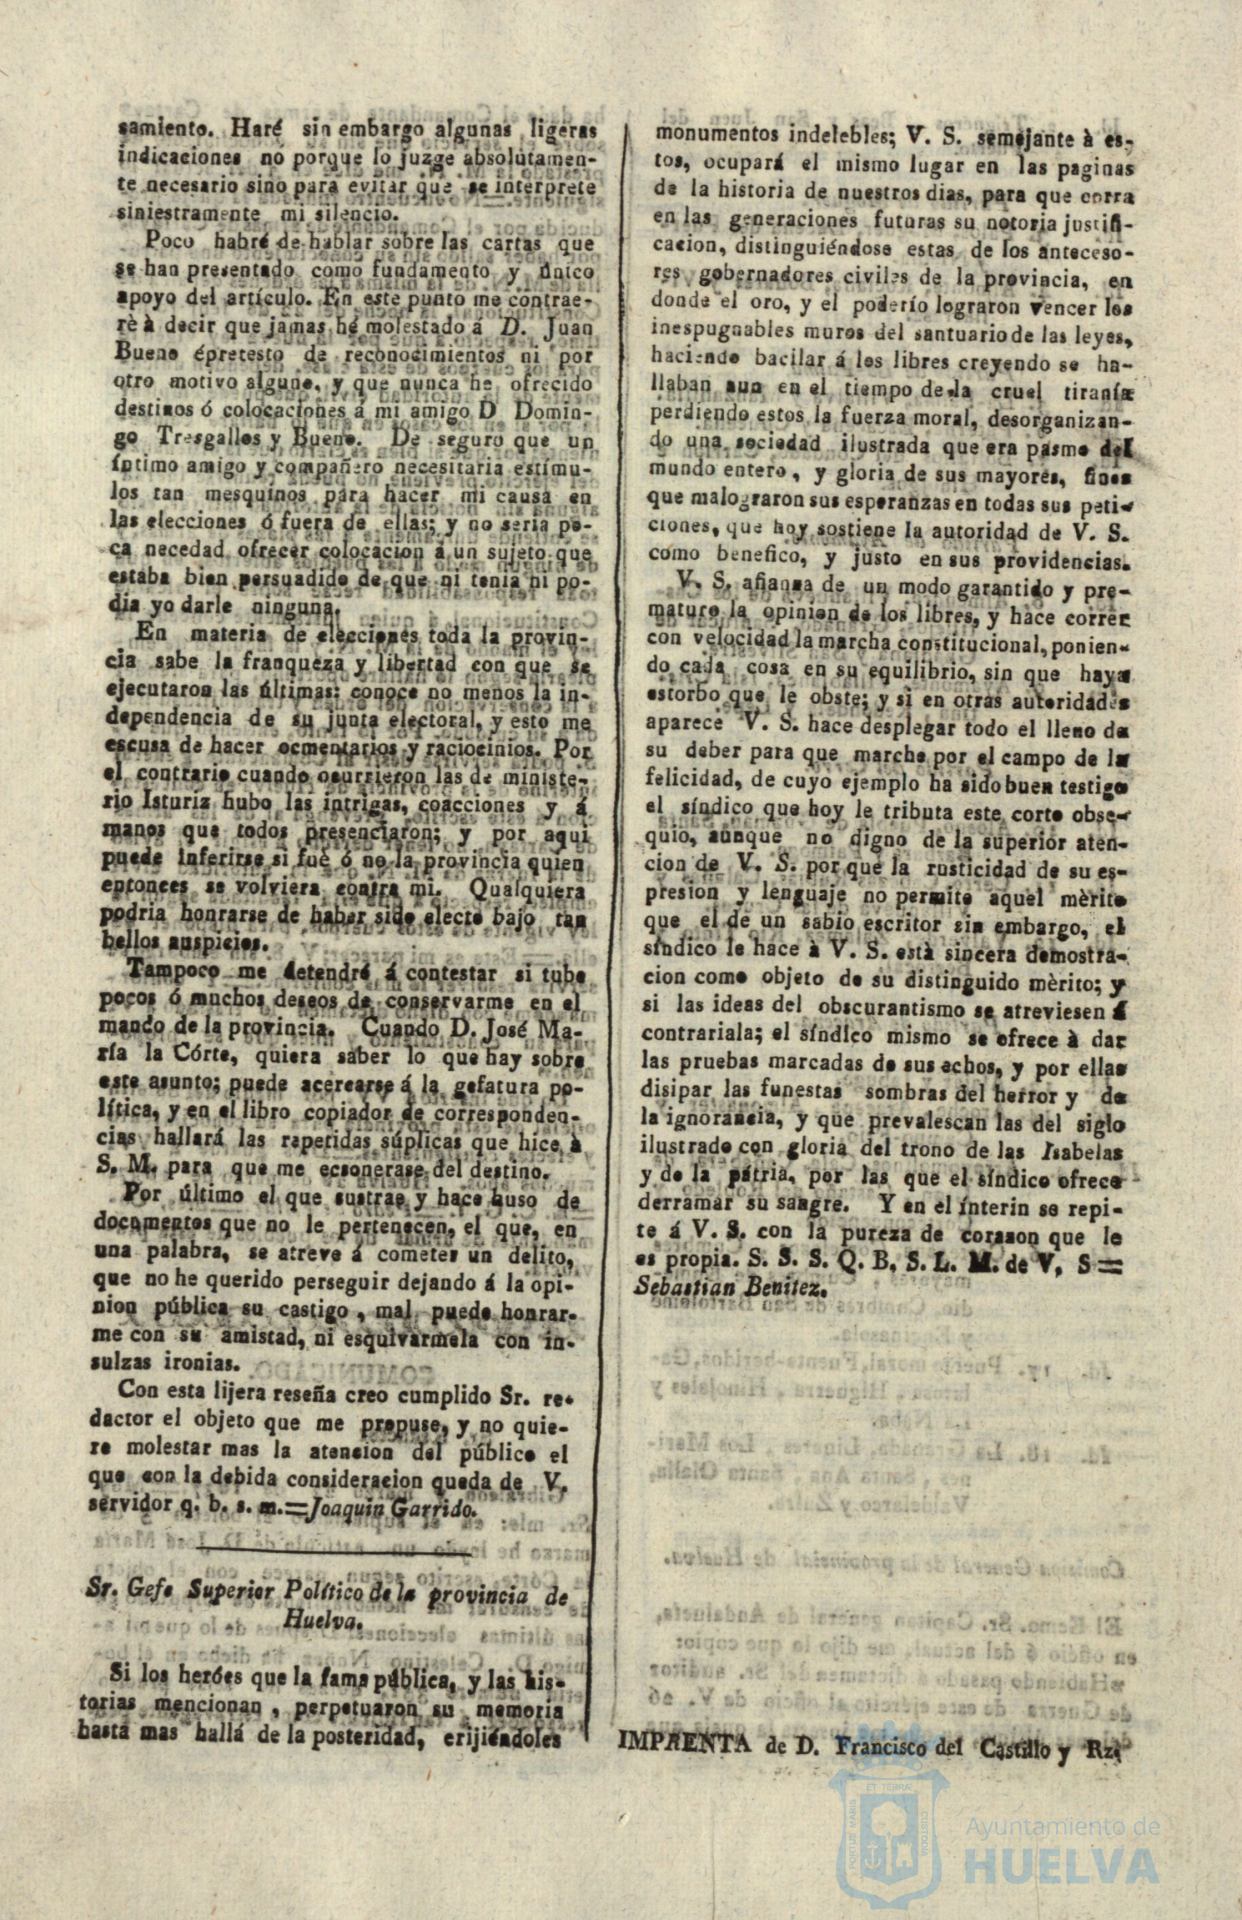 samiento. Haré sin embargo algunas ligeras
indicaciones no porque lo juzge absolutamen-
te necesario sino para evitar que se interprete
siniestramente mi silencio.
Poco habré de hablar sobre las cartas que
se han presentado como fundamento y único
apoyo del artículo. En este punto me contrae-
rè à decir que jamas hé molestado á D. Juan
Bueno épretesto de reconocimientos ni por
otro motivo alguno, y que nunca he ofrecido
destinos ó colocaciones á mi amigo D Domin-
go Tresgallos y Bueno. De seguro que un
íntimo amigo y compañero necesitaria estímu-
los tan mesquinos para hacer mi causa en
las elecciones ó fuera de ellas; y no seria po-
ca necedad ofrecer colocacion á un sujeto que
estaba bien persuadido de que ni tenia ni po-
dia yo darle ninguna.
En materia de elecciones toda la provin-
cia sabe la franqueza y libertad con que se
ejecutaron las últimas: conoce no menos la in-
dependencia de su junta electoral, y esto me
escusa de hacer ocmentarios y raciocinios. Por
el contrario cuando ocurrieron las de ministe-
rio Isturiz hubo las intrigas, coacciones y á
manos que todos presenciaron; y por aqui
puede inferirse si fué ó no la provincia quien
entonces se volviera contra mi. Qualquiera
podria honrarse de haber sido electo bajo tan
bellos auspicios.
Tampoco me detendré á contestar si tube
pocos ó muchos deseos de conservarme en el
mando de la provincia. Cuando D. José Ma-
ría la Córte, quiera saber lo que hay sobre
este asunto; puede acercarse á la gefatura po-
lítica, y en el libro copiador de corresponden-
cias hallará las repetidas súplicas que hice à
S. M. para que me ecsonerase del destino.
Por último el que sustrae y hace huso de
documentos que no le pertenecen, el que, en
una palabra, se atreve á cometer un delito,
que no he querido perseguir dejando á la opi-
nion pública su castigo, mal puede honrar-
me con su amistad, ni esquivarmela con in-
sulzas ironias.
Con esta lijera reseña creo cumplido Sr. re-
dactor el objeto que me propuse, y no quie-
re molestar mas la atencion del público el
que con la debida consideracion queda de V.
servidor q. b. s. m.=Joaquin Garrido.
Sr. Gefe Superior Político de la provincia de
Huelva.
Si los heróes que la fama pública, y las his-
torias mencionan, perpetuaron su memoria
hasta mas hallá de la posteridad, erijiéndoles
monumentos indelebles; V. S. semejante à es-
tos, ocupará el mismo lugar en las paginas
de la historia de nuestros dias, para que corra
en las generaciones futuras su notoria justifi-
cacion, distinguiéndose estas de los anteceso-
res gobernadores civiles de la provincia, en
donde el oro, y el poderío lograron vencer los
inespugnables muros del santuario de las leyes,
haciendo bacilar á los libres creyendo se ha-
llaban aun en el tiempo de la cruel tiranía
perdiendo estos la fuerza moral, desorganizan-
do una sociedad ilustrada que era pasmo del
mundo entero, y gloria de sus mayores, fines
que malograron sus esperanzas en todas sus peti-
ciones, que hoy sostiene la autoridad de V. S.
como benefico, y justo en sus providencias.
V. S. afianza de un modo garantido y pre-
maturo la opinion de los libres, y hace correr
con velocidad la marcha constitucional, ponien-
do cada cosa en su equilibrio, sin que haya
estorbo que le obste; y si en otras autoridades
aparece V. S. hace desplegar todo el lleno de
su deber para que marche por el campo de la
felicidad, de cuyo ejemplo ha sido buen testigo
el síndico que hoy le tributa este corto obse-
quio, aunque no digno de la superior aten-
cion de V. S. por que la rusticidad de su es-
presion y lenguaje no permite aquel mèrito
que el de un sabio escritor sin embargo, el
síndico le hace à V. S. està sincera demostra-
cion como objeto de su distinguido mèrito; y
si las ideas del obscurantismo se atreviesen á
contrariala; el síndico mismo se ofrece à dar
las pruebas marcadas de sus echos, y por ellas
disipar las funestas sombras del herror y de
la ignorancia, y que prevalescan las del siglo
ilustrado con gloria del trono de las Isabelas
y de la pátria, por las que el síndico ofrece
derramar su sangre. Y en el ínterin se repi-
te á V. S. con la pureza de corason que le
es propia. S. S. S. Q. B. S. L. M. de V. S=
Sebastian Benitez.
IMPRENTA de D. Francisco del Castillo y Rz.
ET TERRÆ
PORTUS MARIS
CUSTODIA
Ayuntamiento de
HUELVA